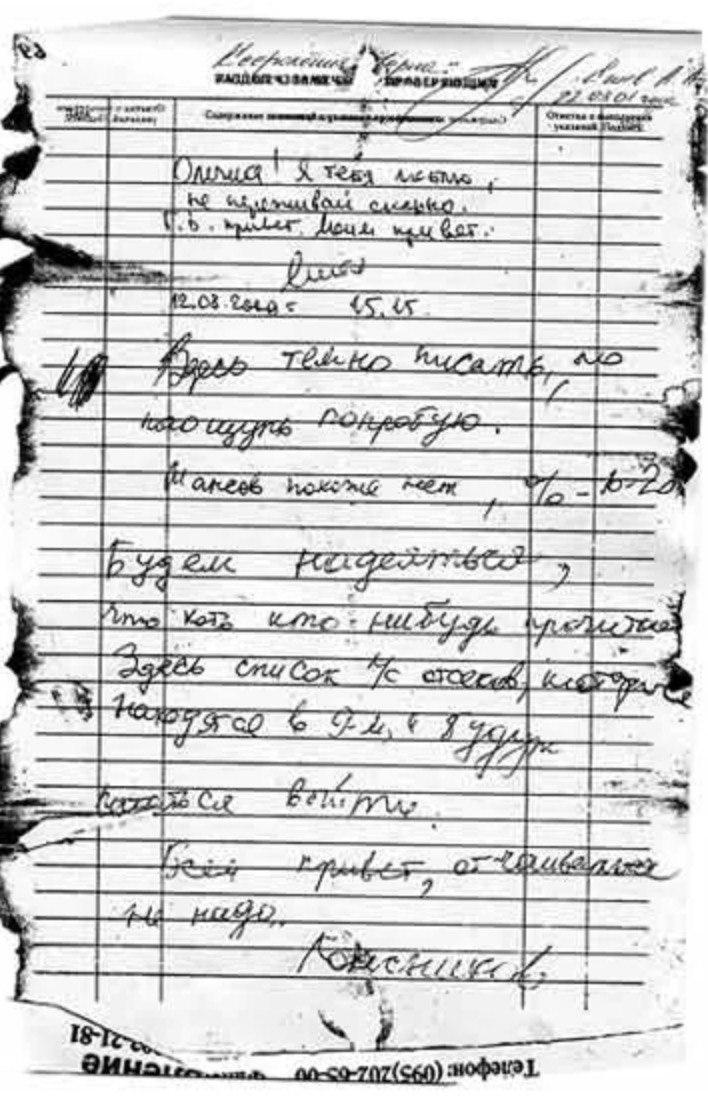 Ксерокопия верна:
22.03.01
проверяющих
Содержание
Отметка о
Олечка! Я тебя люблю,
не переживай сильно.
Г.В. привет. Моим привет.
12.08.2000г 15.15.
Здесь темно писать, но
наощупь попробую.
Шансов похоже нет, % - 10-20
Будем надеяться,
что хоть кто-нибудь прочитает
Здесь список л/с отсеков, которые
находятся в 9-м, и будут
пытаться выйти.
Всем привет, отчаиваться
не надо.
Колесников
Телефон: (095)202-65-00
21-81